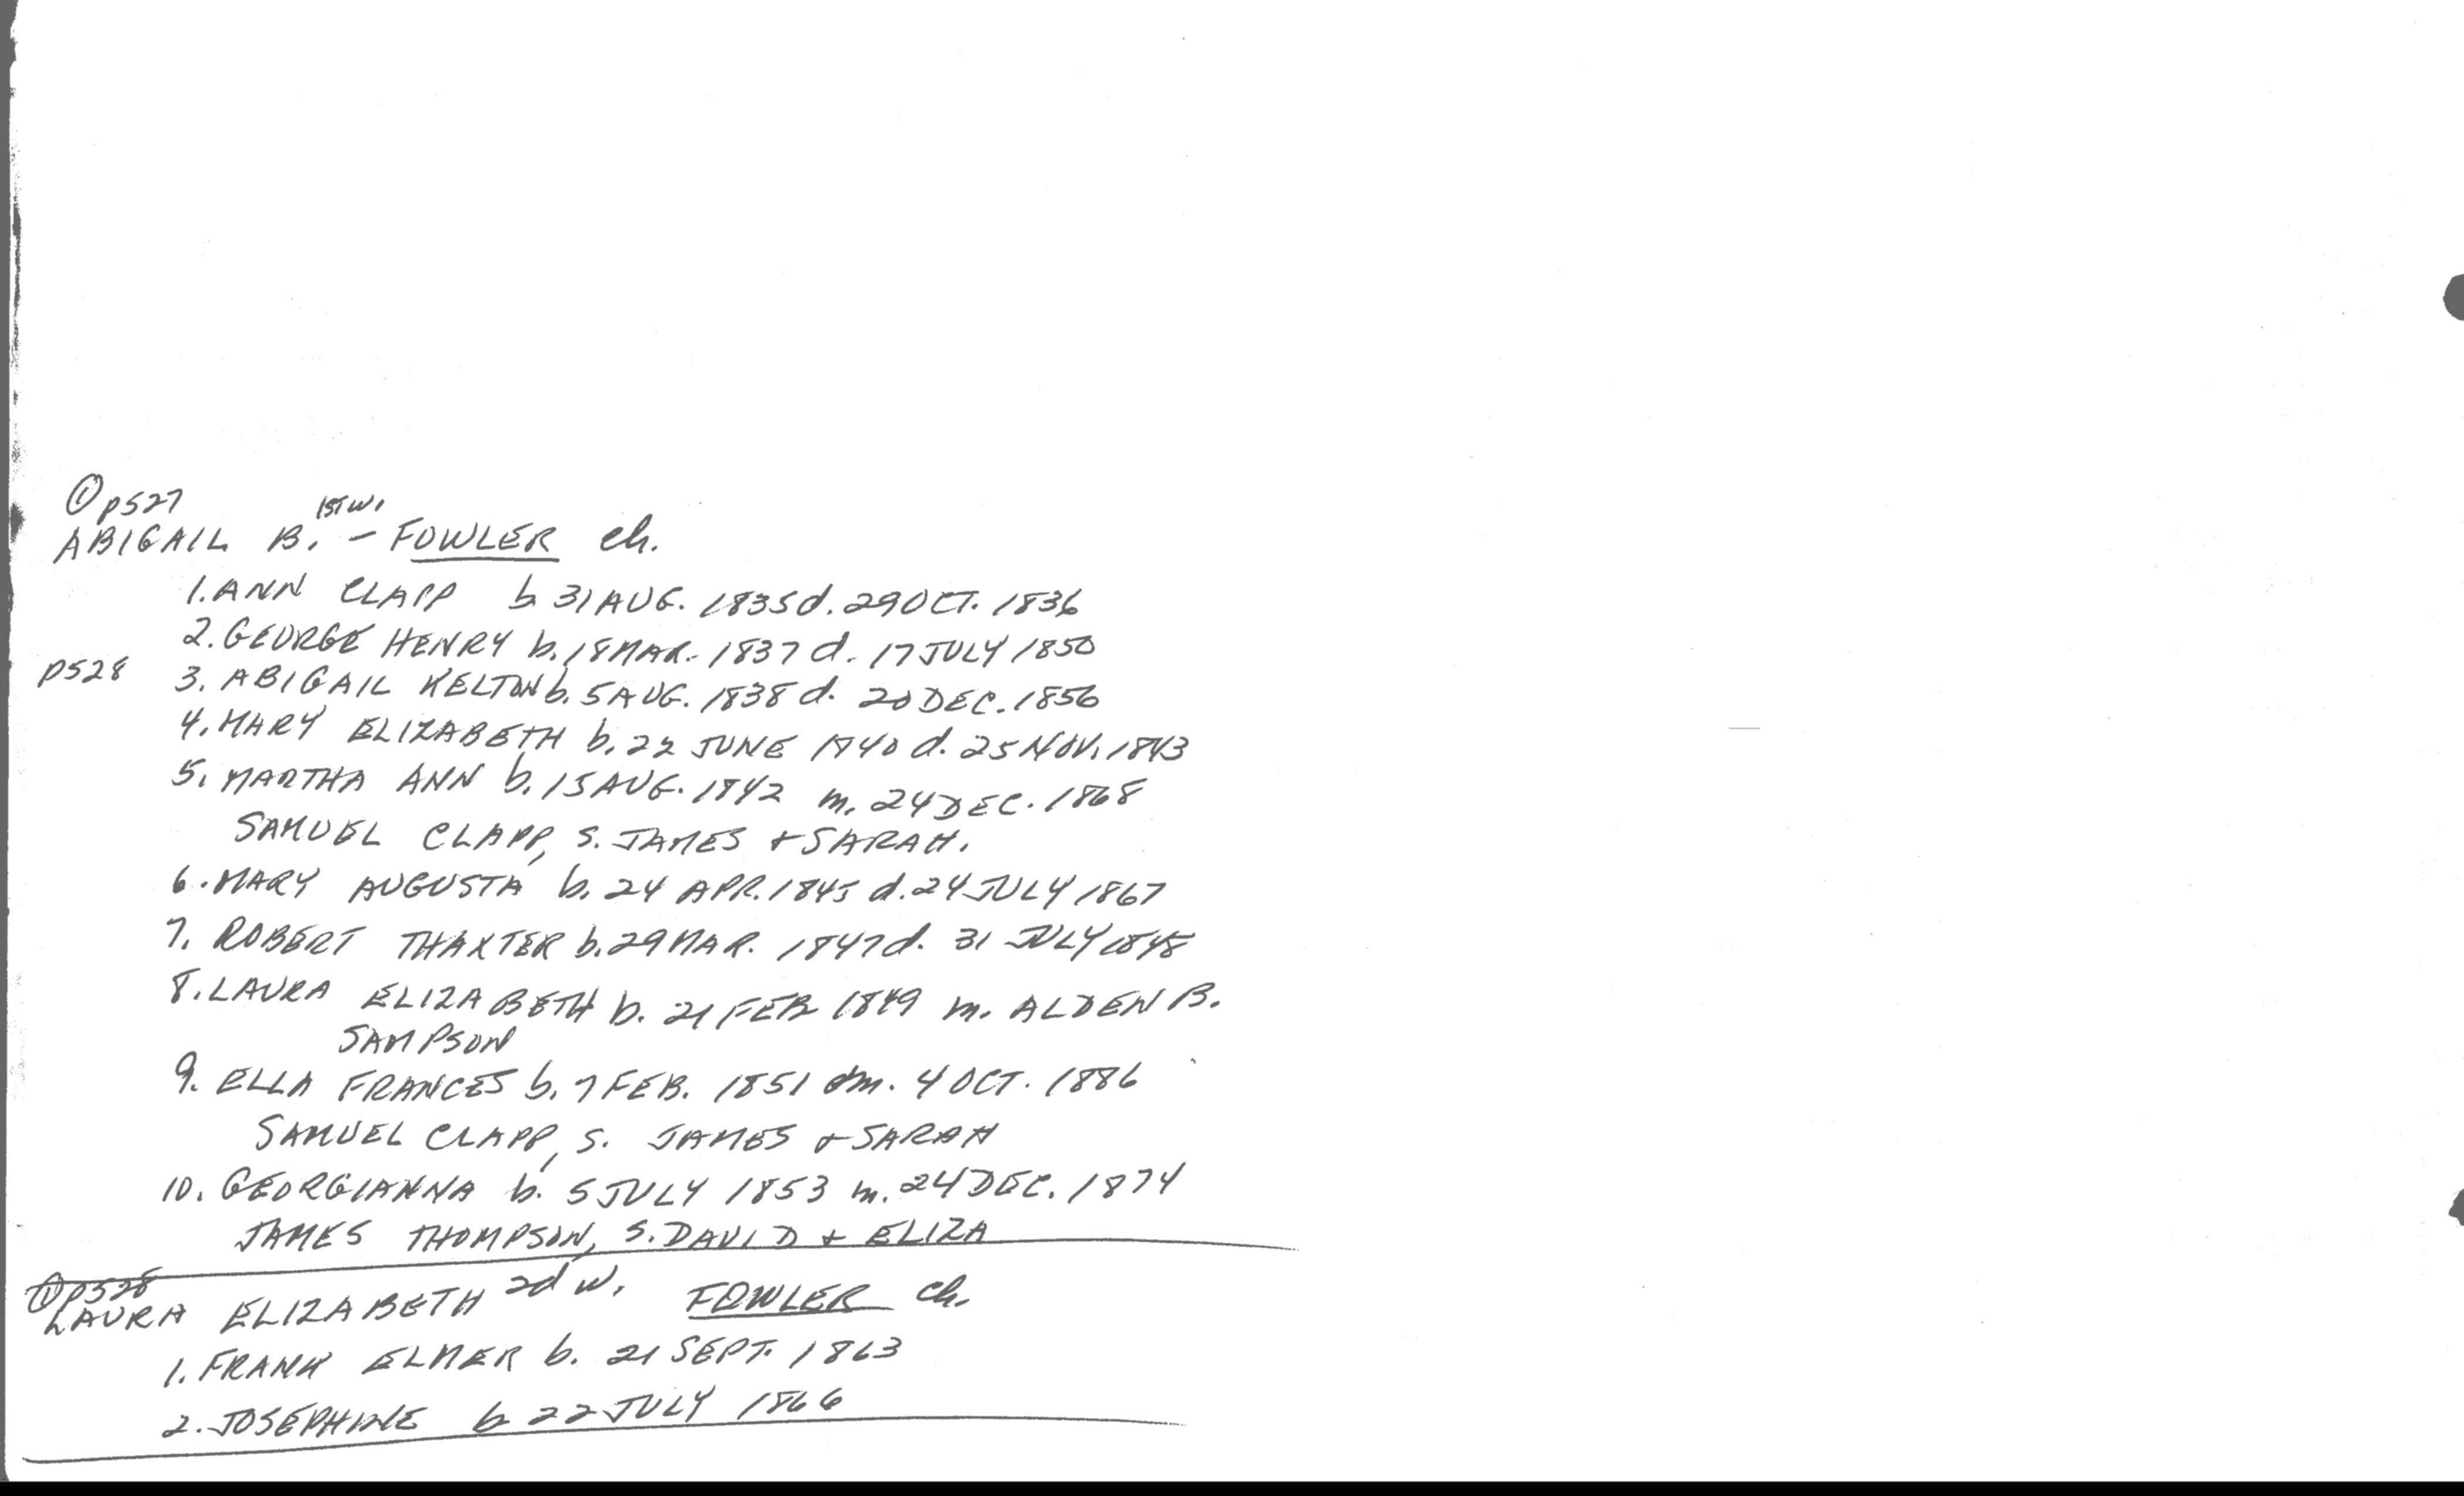 ① p527
1ST W.
ABIGAIL B. - FOWLER ch.
1. ANN CLAPP b 31 AUG. 1835 d. 29 OCT. 1836
2. GEORGE HENRY b. 18 MAR. 1837 d. 17 JULY 1850
p528 3. ABIGAIL KELTON b. 5 AUG. 1838 d. 20 DEC. 1856
4. MARY ELIZABETH b. 22 JUNE 1840 d. 25 NOV. 1843
5. MARTHA ANN b. 15 AUG. 1842 m. 24 DEC. 1868
SAMUEL CLAPP, S. JAMES + SARAH.
6. MARY AUGUSTA b. 24 APR. 1845 d. 24 JULY 1867
7. ROBERT THAXTER b. 29 MAR. 1847 d. 31 JULY 1848
8. LAURA ELIZABETH b. 21 FEB 1849 m. ALDEN B.
SAMPSON
9. ELLA FRANCES b. 7 FEB. 1851 m. 4 OCT. 1886
SAMUEL CLAPP, S. JAMES + SARAH
10. GEORGIANNA b. 5 JULY 1853 m. 24 DEC. 1874
JAMES THOMPSON, S. DAVID + ELIZA
① p528
LAURA ELIZABETH 2d w. FOWLER ch.
1. FRANK ELMER b. 21 SEPT. 1863
2. JOSEPHINE b 22 JULY 1866